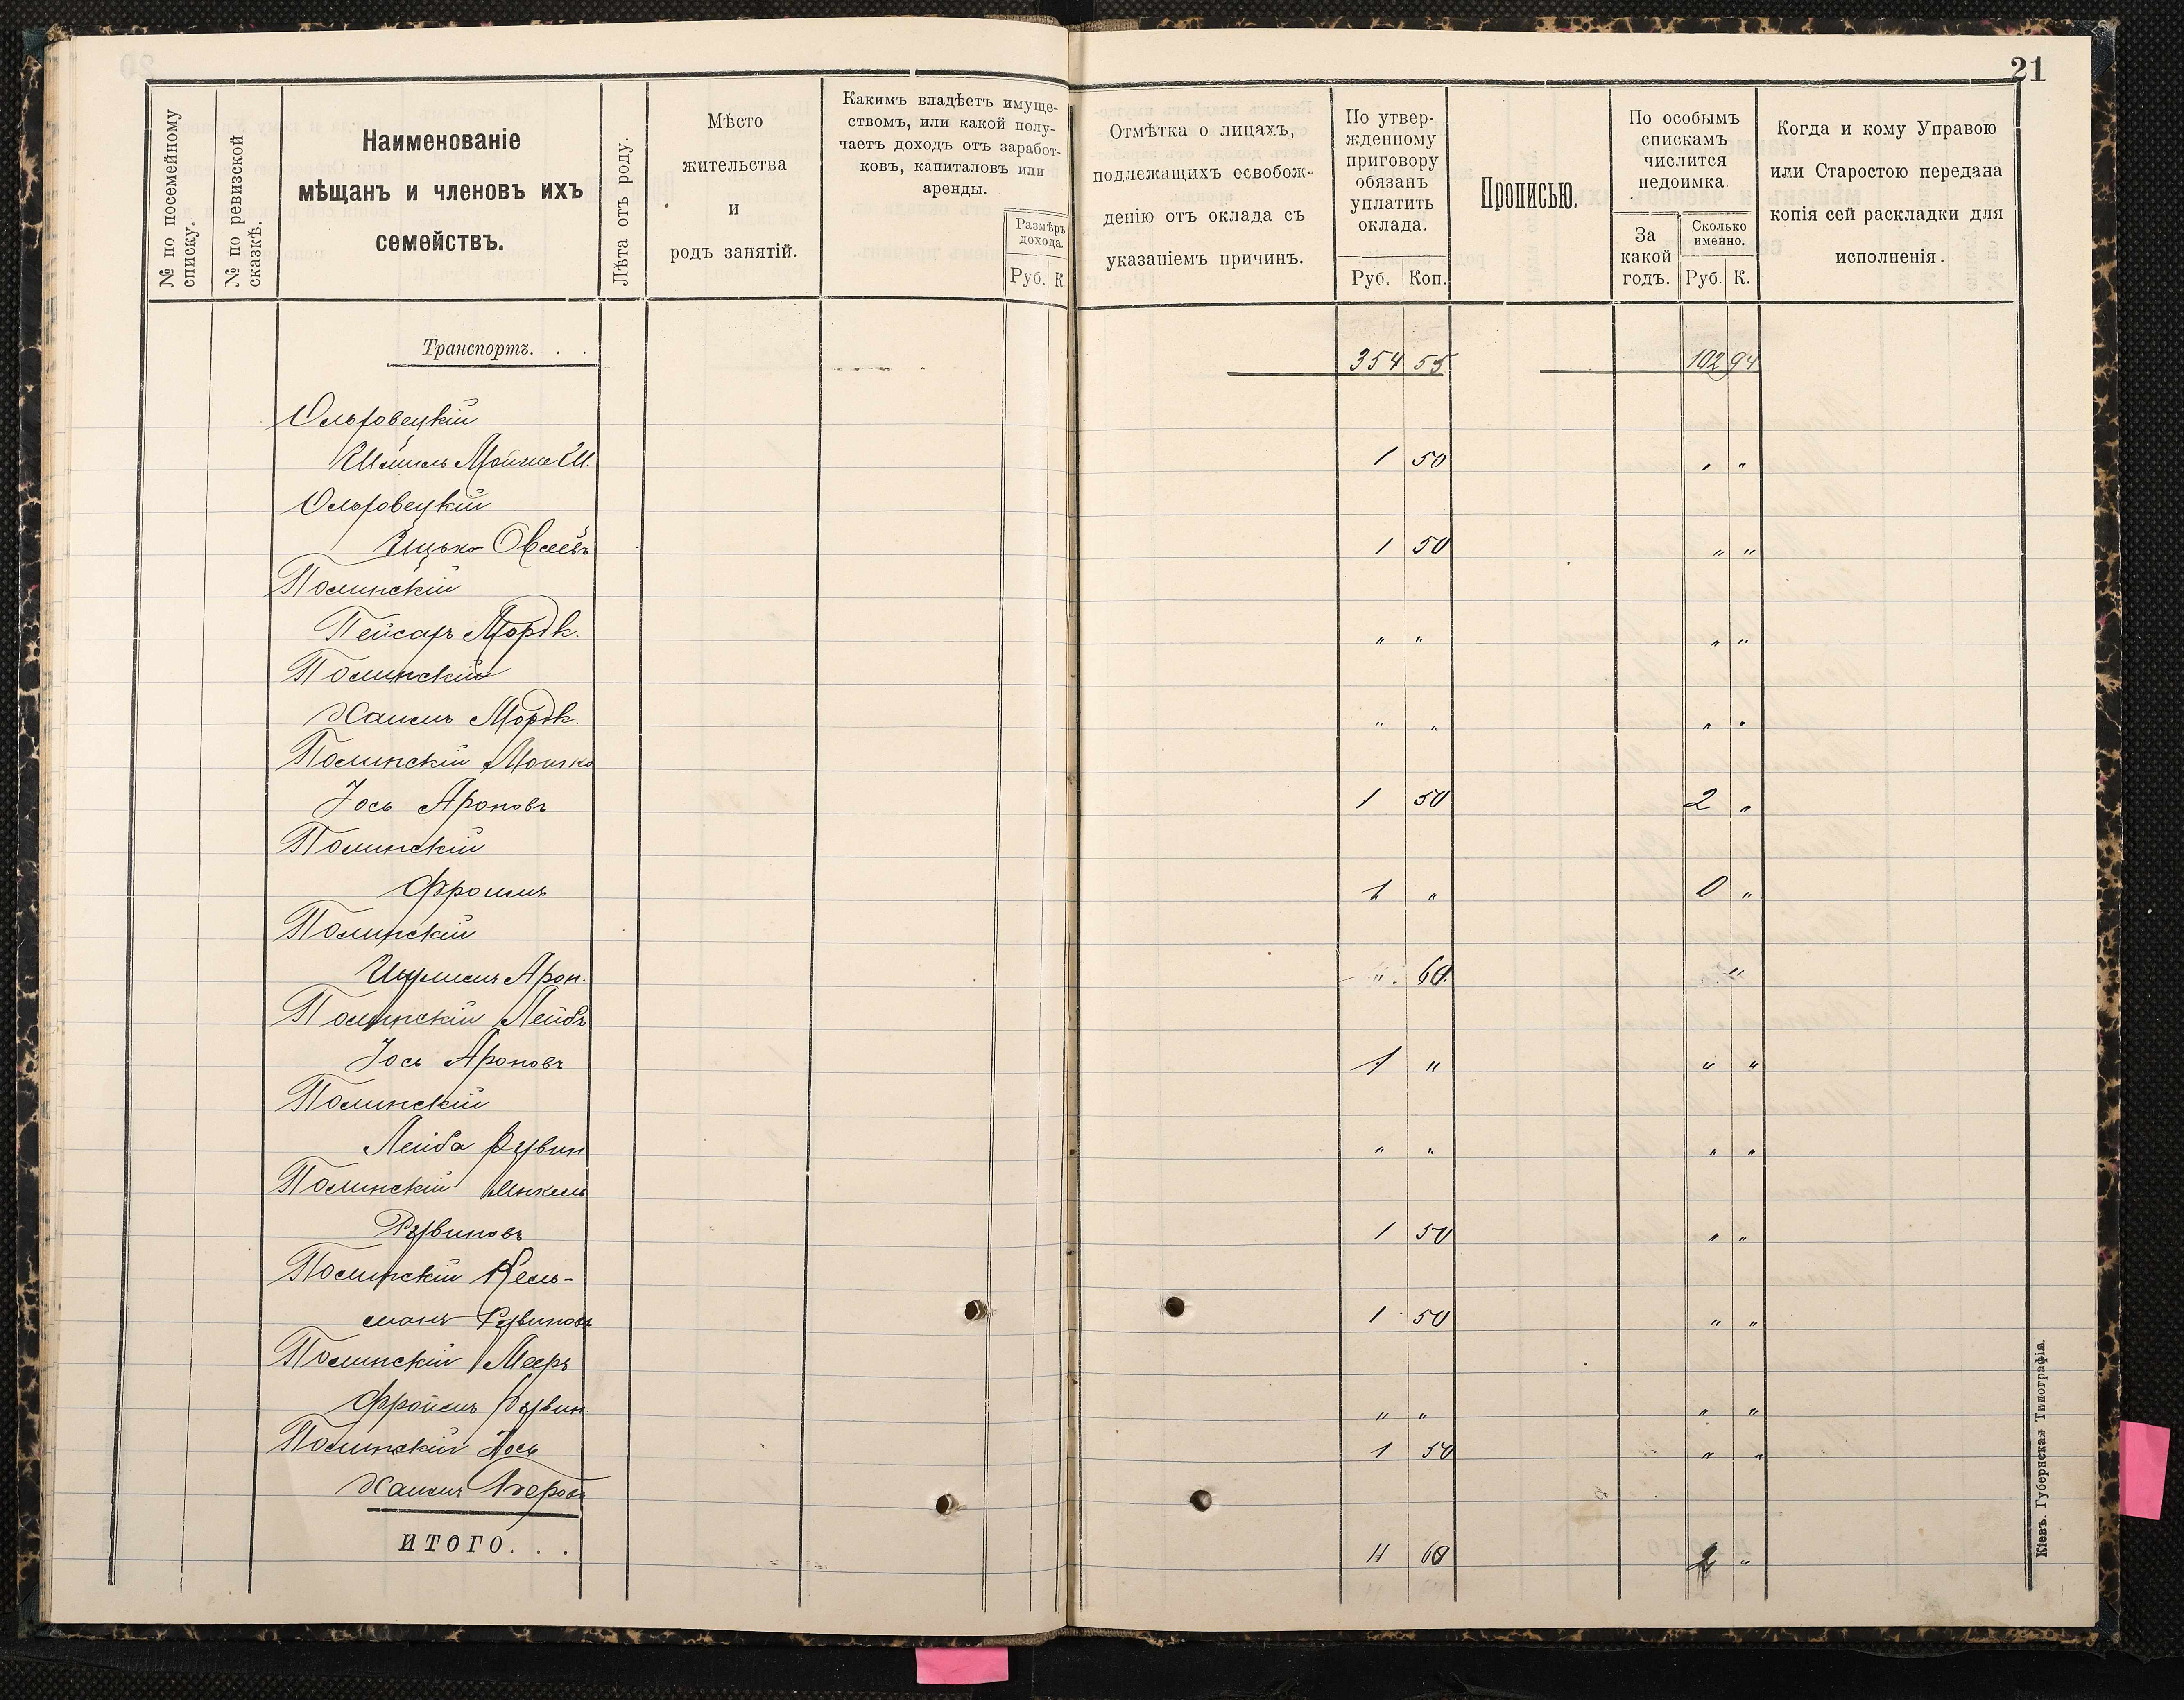 21
№ по посемейному списку.
№ по ревизской сказкѣ.
Наименованіе
мѣщанъ и членовъ ихъ
семействъ.
Лѣта отъ роду.
Мѣсто
жительства
и
родъ занятій.
Какимъ владѣетъ имуще-
ствомъ, или какой полу-
чаетъ доходъ отъ заработ-
ковъ, капиталовъ или
аренды.
Размѣръ
дохода.
Руб. К
Отмѣтка о лицахъ,
подлежащихъ освобож-
денію отъ оклада съ
указаніемъ причинъ.
По утвер-
жденному
приговору
обязанъ
уплатить
оклада.
Руб. Коп.
Прописью.
По особымъ
спискамъ
числится
недоимка.
За
какой
годъ.
Сколько
именно.
Руб. К.
Когда и кому Управою
или Старостою передана
копія сей раскладки для
исполненія.
Транспортъ. . . 354 55 102 94
Ольховецкій
Мойше 1 50 " "
Ольховецкій
Ицько Овсѣевъ 1 50 " "
Полинскій
Пейсахъ Мордк. " " " "
Полинскій
Хаимъ Мордк. " " " "
Полинскій Мошко
Іось Ароновъ 1 50 2 "
Полинскій
Фроимъ 1 " 0 "
Полинскій
Арон. " 60 "
Полинскій Лейбъ
Іось Ароновъ 1 " " "
Полинскій
Лейба Рувин " " " "
Полинскій
Рувиновъ 1 50 " "
Полинскій Кель-
манъ Рувиновъ 1 50 " "
Полинскій Мееръ
Фроимъ Рувин. " " " "
Полинскій Іось 1 50 " "
Хаимъ
ИТОГО. . . 11 60 2 "
Кіевъ. Губернская Типографія.